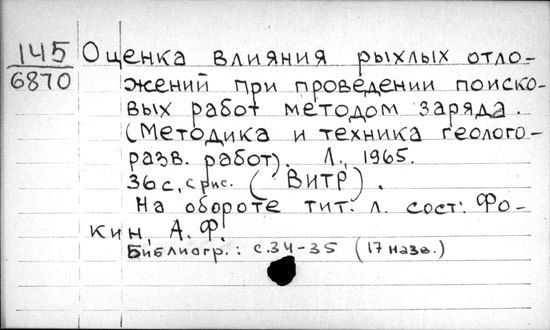 145 Оценка влияния рыхлых отло-
6870 жений при проведении поиско-
вых работ методом заряда.
(Методика и техника геолого-
разв. работ). Л., 1965.
36 с. с рис. (ВИТР).
На обороте тит. л. сост: Фо-
кин, А. Ф.
Библиогр.: с. 34-35 (17 назв.)